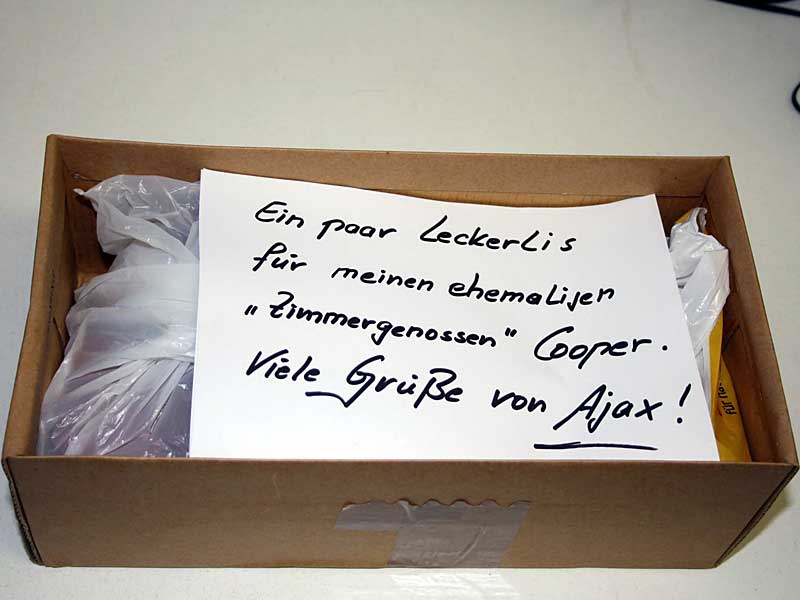 Ein paar Leckerlis
für meinen ehemaligen
„Zimmergenossen" Cooper.
Viele Grüße von Ajax!